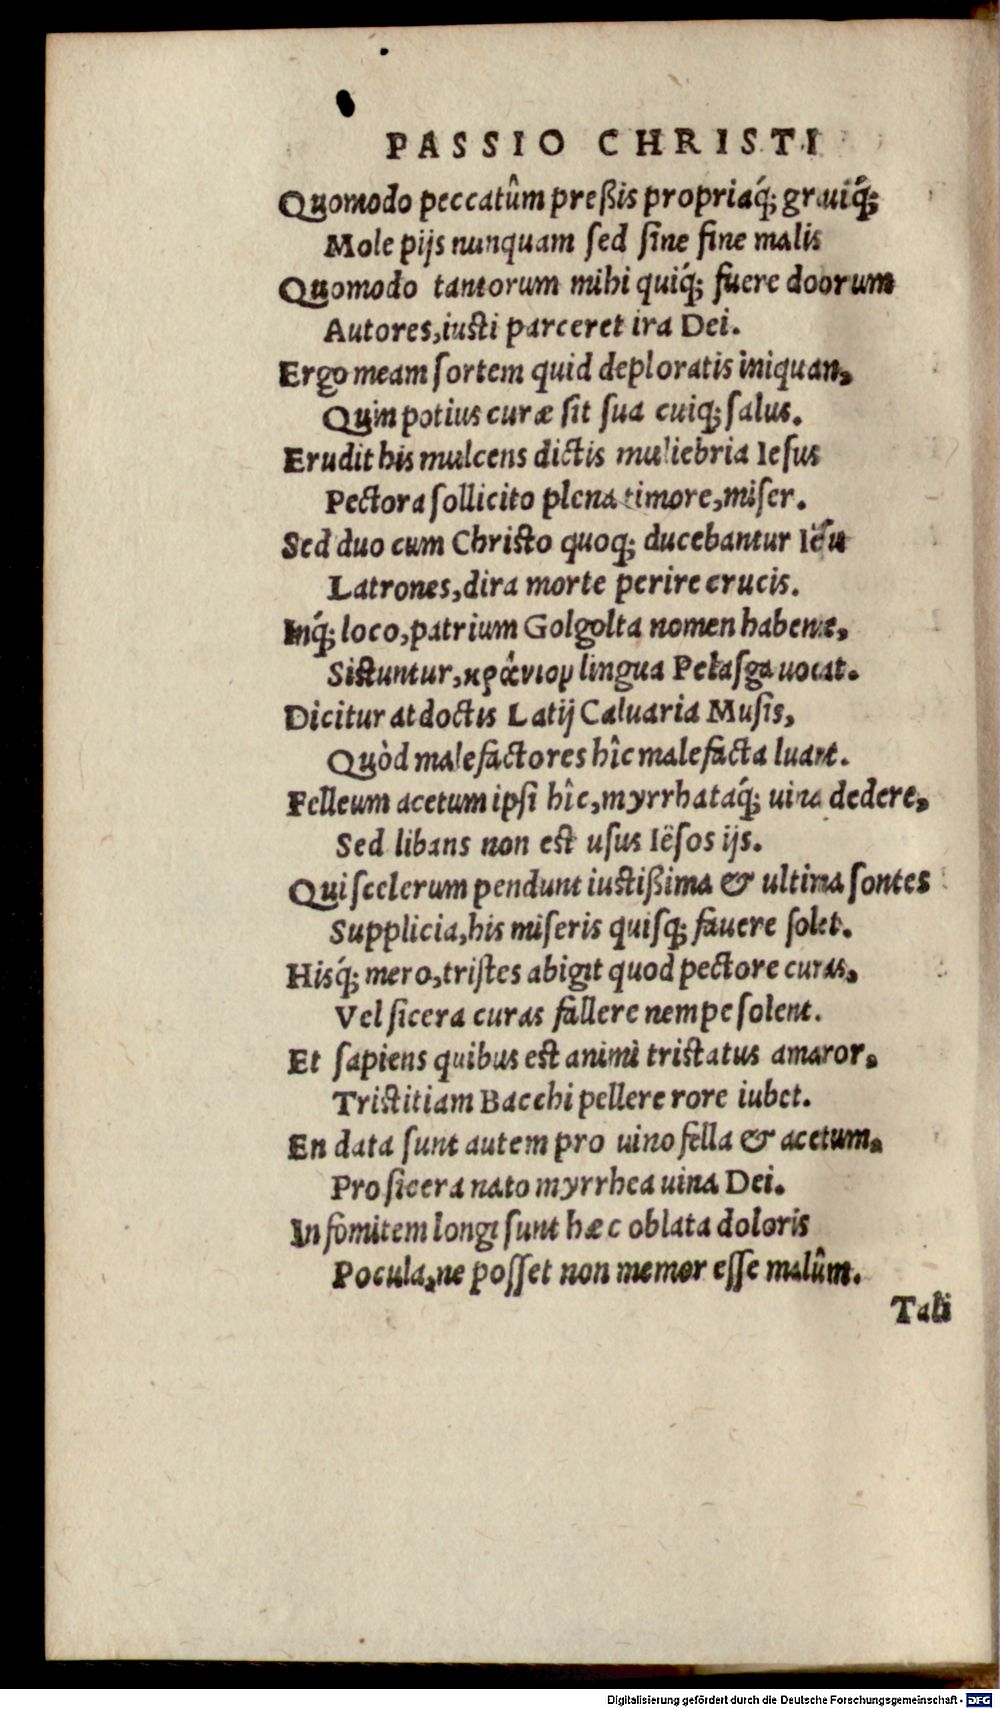 PASSIO CHRISTI
Quomodo peccatûm preßis propriaq́; grauiq́;
Mole pijs nunquam sed sine fine malis
Quomodo tantorum mihi quiq́; fuere doorum
Autores, iusti parceret ira Dei.
Ergo meam sortem quid deploratis iniquan,
Quin potius curæ sit sua cuiq; salus.
Erudit his mulcens dictis muliebria Iesus
Pectora sollicito plena timore, miser.
Sed duo cum Christo quoq; ducebantur Iësu
Latrones, dira morte perire crucis.
Inq́; loco, patrium Golgolta nomen habente,
Sistuntur, κράνιον lingua Pelasga uocat.
Dicitur at doctis Latij Caluaria Musis,
Quòd malefactores hîc malefacta luant.
Felleum acetum ipsi hîc, myrrhataq́; uina dedere,
Sed libans non est usus Iësos ijs.
Qui scelerum pendunt iustißima & ultima sontes
Supplicia, his miseris quisq; fauere solet.
Hisq́; mero, tristes abigit quod pectore curas,
Vel sicera curas fallere nempe solent.
Et sapiens quibus est animi tristatus amaror,
Tristitiam Bacchi pellere rore iubet.
En data sunt autem pro uino fella & acetum,
Pro sicera nato myrrhea uina Dei.
In fomitem longi sunt hæc oblata doloris
Pocula, ne posset non memor esse malûm.
Tali
Digitalisierung gefördert durch die Deutsche Forschungsgemeinschaft - DFG